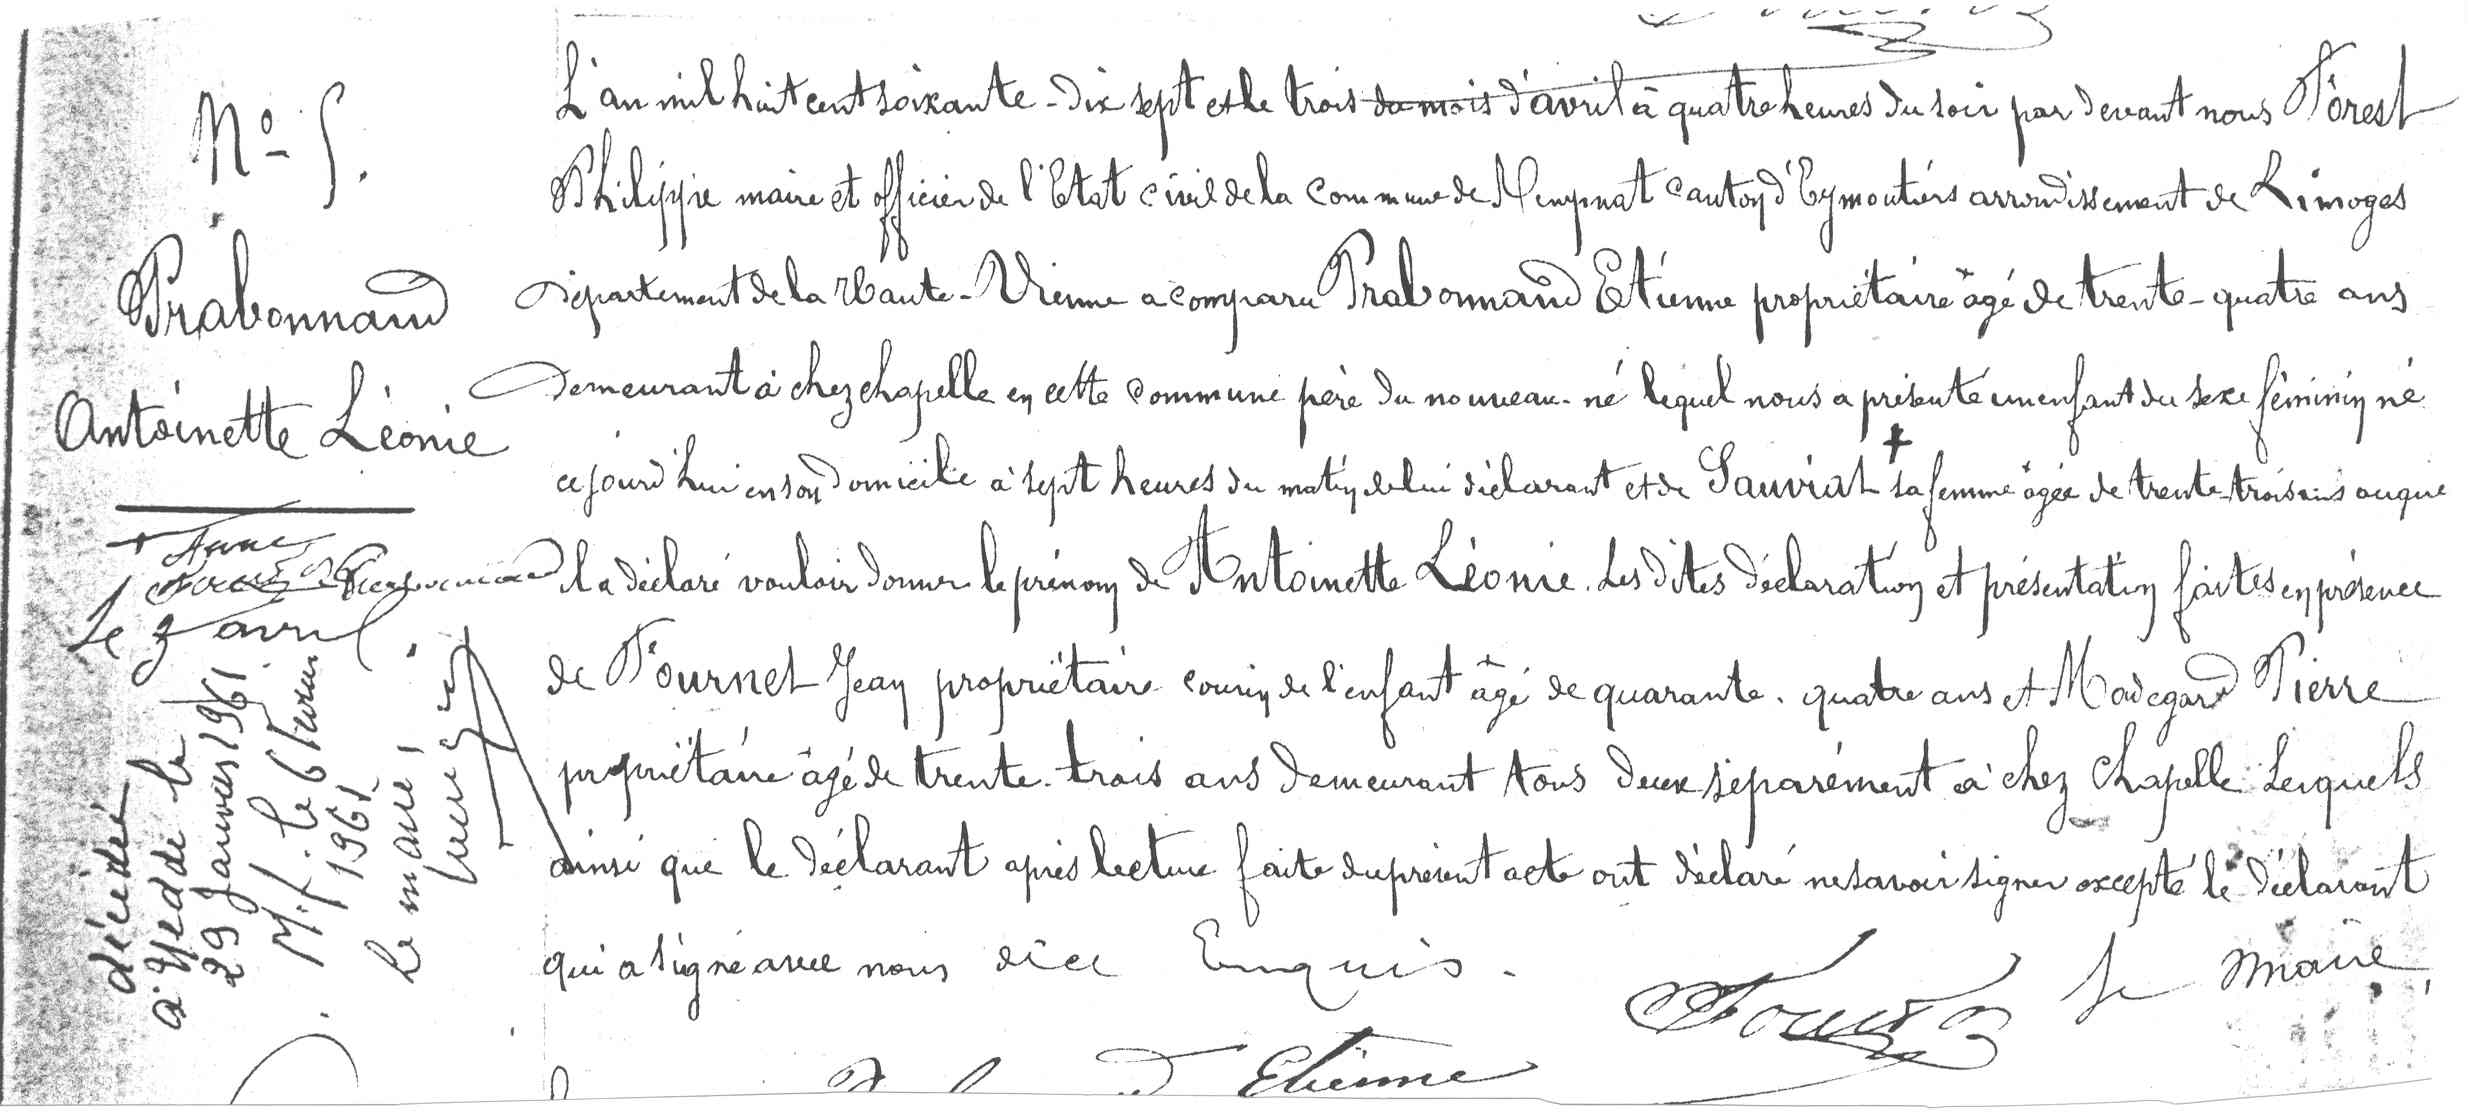 No 5.
Prabonnaud
Antoinette Léonie
+ Anne
Le 3 avril
décédée
à Nedde le
29 Janvier 1961
M.f. le 6 février
1961
Le maire,
L'an mil huit cent soixante-dix sept et le trois du mois d'avril à quatre heures du soir par devant nous Forest
Philippe maire et officier de l'Etat civil de la commune de Rempnat canton d'Eymoutiers arrondissement de Limoges
département de la Haute-Vienne a comparu Prabonnaud Etienne propriétaire âgé de trente-quatre ans
demeurant à chez chapelle en cette commune père du nouveau-né lequel nous a présenté un enfant du sexe féminin né
ce jourd'hui en son domicile à sept heures du matin de lui déclarant et de Sauviat + sa femme âgée de trente-trois ans auquel
il a déclaré vouloir donner le prénom de Antoinette Léonie. Les dites déclaration et présentation faites en présence
de Fournet Jean propriétaire cousin de l'enfant âgé de quarante-quatre ans et Madegard Pierre
propriétaire âgé de trente-trois ans demeurant tous deux séparément à chez chapelle Lesquels
ainsi que le déclarant après lecture faite du présent acte ont déclaré ne savoir signer excepté le déclarant
qui a signé avec nous de ce Enquis.
Le maire,
Forest
Etienne